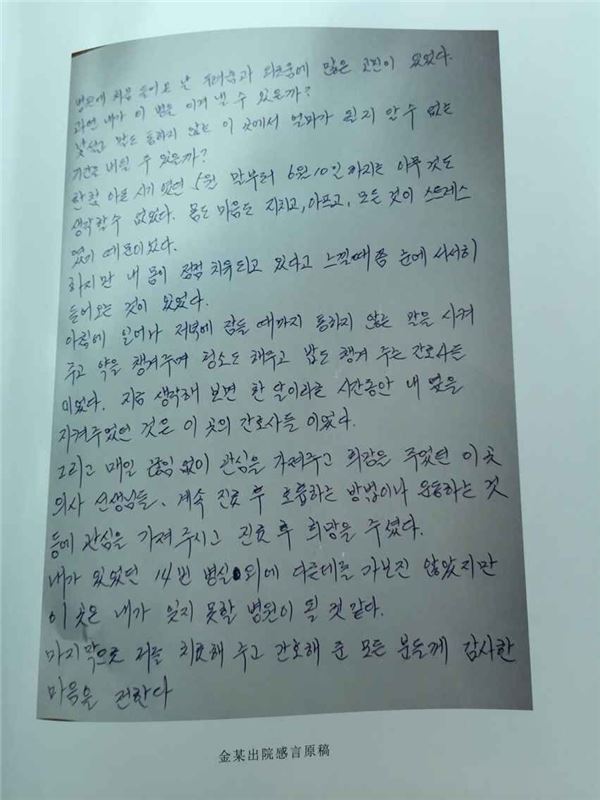 병원에 처음 들어온 날 두려움과 외로움에 많은 고민이 있었다.
과연 내가 이 병을 이겨 낼 수 있을까?
낯설고 말도 통하지 않는 이 곳에서 얼마가 될지 알 수 없는
기간을 버틸 수 있을까?
한창 아픈 시기 였던 5월 말부터 6월10일 까지는 아무 것도
생각할 수 없었다. 몸도 마음도 지치고, 아프고, 모든 것이 스트레스
였기 때문이었다.
하지만 내 몸이 점점 치유되고 있다고 느낄때 쯤 눈에 서서히
들어오는 것이 있었다.
아침에 일어나 저녁에 잠들 때까지 통하지 않는 말을 시켜
주고 약을 챙겨주며 청소도 해주고 밥도 챙겨 주는 간호사들
이었다. 지금 생각해 보면 한 달이라는 시간동안 내 옆을
지켜주었던 것은 이 곳의 간호사들 이었다.
그리고 매일 끊임 없이 관심을 가져주고 희망을 주었던 이 곳
의사 선생님들, 계속 진료 후 호흡하는 방법이나 운동하는 것
등에 관심을 가져 주시고 진료 후 희망을 주셨다.
내가 있었던 14번 병실 외에 다른데를 가보진 않았지만
이 곳은 내가 잊지 못할 병원이 될 것 같다.
마지막으로 저를 치료해 주고 간호해 준 모든 분들께 감사한
마음을 전한다
金某出院感言原稿